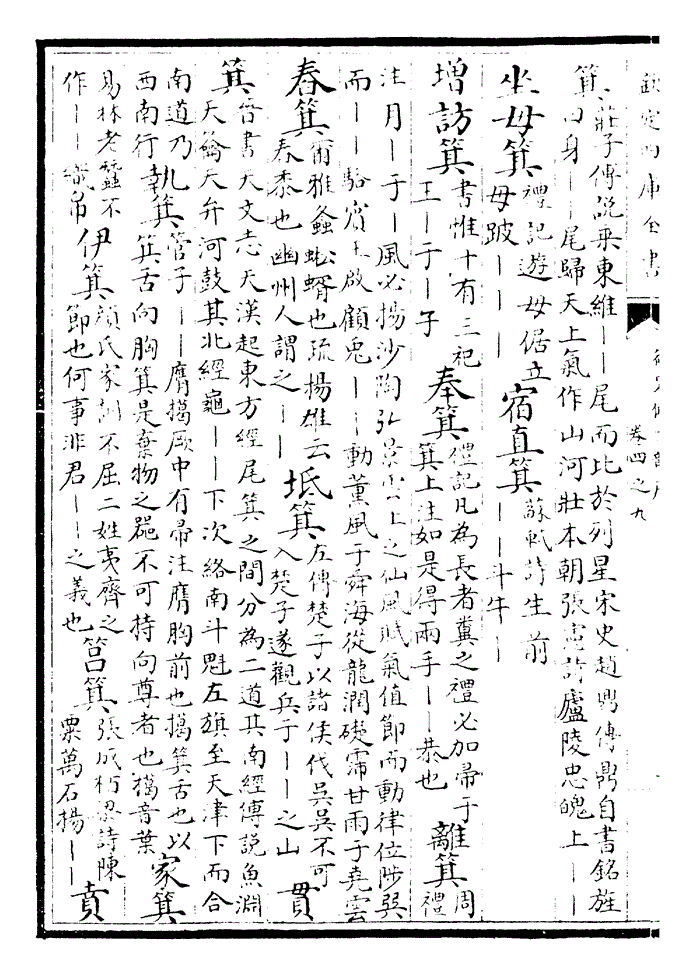 欽定四庫全書
卷四之九
箕 莊子傅說乘東維——尾而比於列星宋史趙鼎傳鼎自書銘旌
曰身——尾歸天上氣作山河壯本朝張憲詩廬陵忠魄上——
坐毋箕 禮記遊毋倨立
毋跛———
宿直箕 蘇軾詩生前
——斗牛—
增訪箕 書惟十有三祀
王—于—子
奉箕 禮記凡為長者糞之禮必加帚于
箕上注如是得兩手——恭也
離箕 周
禮
注月—于—風必揚沙陶弘景雲上之仙風賦氣值節而動律位陟巽
而——駱賓王啟顧兔——動薰風于舜海從龍潤礎霈甘雨于堯雲
舂箕 爾雅螽蜙蝑也疏揚雄云
舂黍也幽州人謂之——
坻箕 左傳楚子以諸侯伐吳吳不可
入楚子遂觀兵于——之山
貫
箕 晉書天文志天漢起東方經尾箕之間分為二道其南經傅說魚淵
天籥天弁河鼓其北經龜——下次絡南斗魁左旗至天津下而合
南道乃
西南行
執箕 管子——膺擖厥中有帚注膺胸前也擖箕舌也以
箕舌向胸箕是棄物之器不可持向尊者也擖音葉
家箕
易林老蠶不
作——織帛
伊箕 顏氏家訓不屈二姓夷齊之
節也何事非君——之義也
筥箕 張成朽梁詩陳
粟萬石揚——
賁